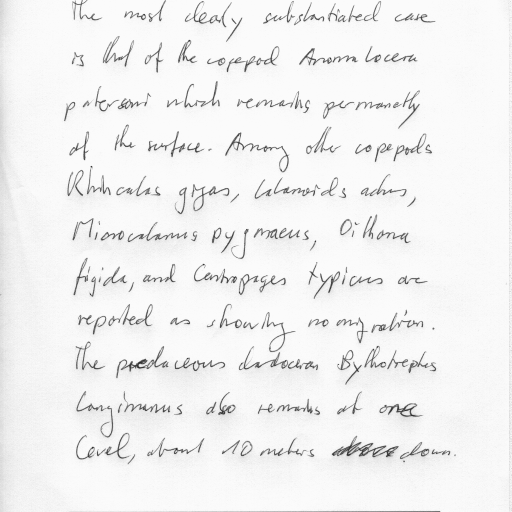 The most clearly substantiated case
is that of the copepod Anomalocera
patersoni which remains permanently
at the surface. Among other copepods
Rhincalas gigas, Calanoids acutus,
Microcalanus pygmaeus, Oithona
frigida, and Centropages typicus are
reported as showing no migration.
The predaceous cladoceran Bythotrephes
longimanus also remains at one
level, about 10 meters down.